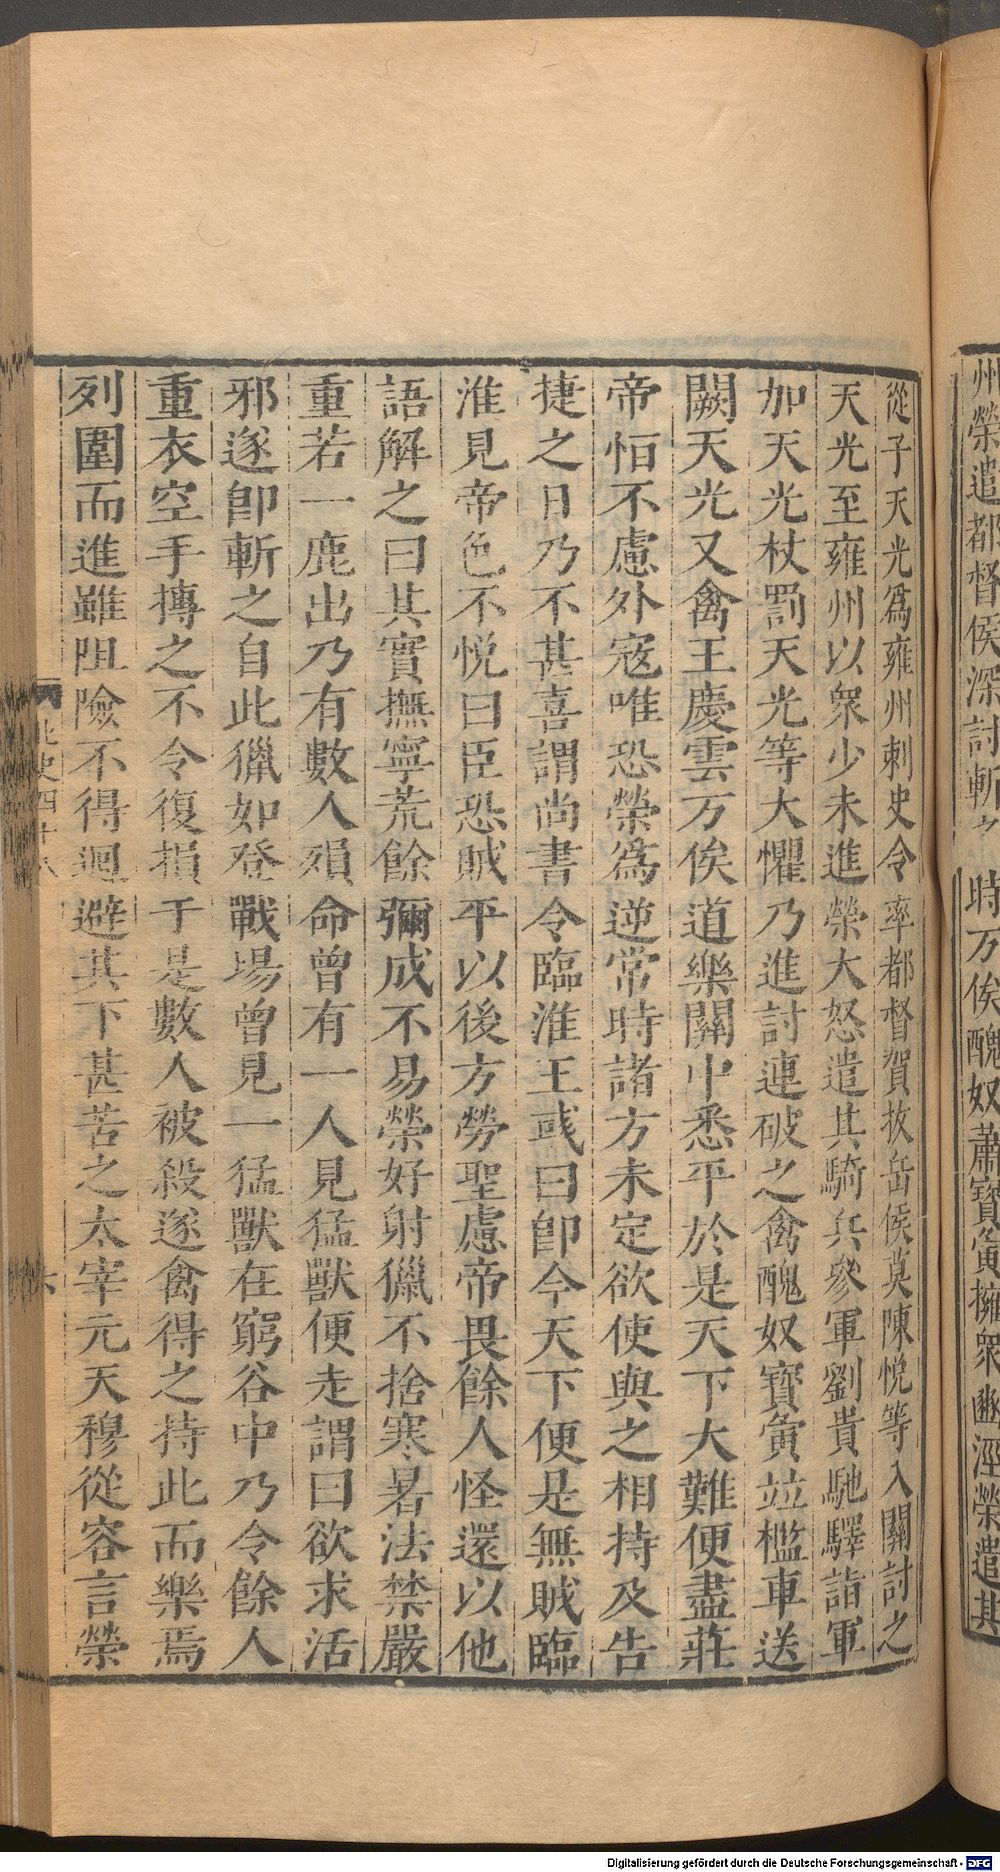 州榮遣都督侯深討斬之　時万俟醜奴蕭寳夤擁衆豳涇榮遣其
從子天光爲雍州刺史令率都督賀抜岳侯莫陳悅等入關討之
天光至雍州以衆少未進榮大怒遣其騎兵參軍劉貴馳驛詣軍
加天光杖罰天光等大懼乃進討連破之禽醜奴寳夤竝檻車送
闕天光又禽王慶雲万俟道樂關中悉平於是天下大難便盡莊
帝怕不慮外寇唯恐榮爲逆常時諸方未定欲使與之相持及告
捷之日乃不甚喜謂尚書令臨淮王彧曰卽今天下便是無賊臨
淮見帝色不悅曰臣恐賊平以後方勞聖慮帝畏餘人怪還以他
語解之曰其實撫寧荒餘彌成不易榮好射獵不捨寒暑法禁嚴
重若一鹿出乃有數人殞命曾有一人見猛獸便走謂曰欲求活
邪遂卽斬之自此獵如登戰場曾見一猛獸在窮谷中乃令餘人
重衣空手搏之不令復損于是數人被殺遂禽得之持此而樂焉
列圍而進雖阻險不得迴避其下甚苦之太宰元天穆從容言榮
北史四十八
六
Digitalisierung gefördert durch die Deutsche Forschungsgemeinschaft - DFG